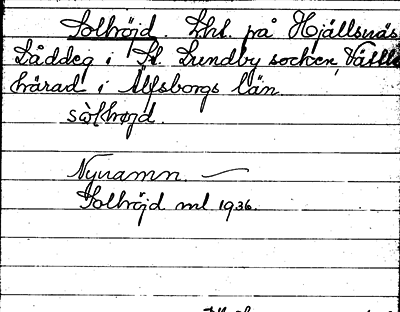 Solhöjd. Lht. på Hjällsnäs
Låddeg i St. Lundby socken, Vättle
härad i Älfsborgs län.
Nynamn. —
Solhöjd ml 1936.